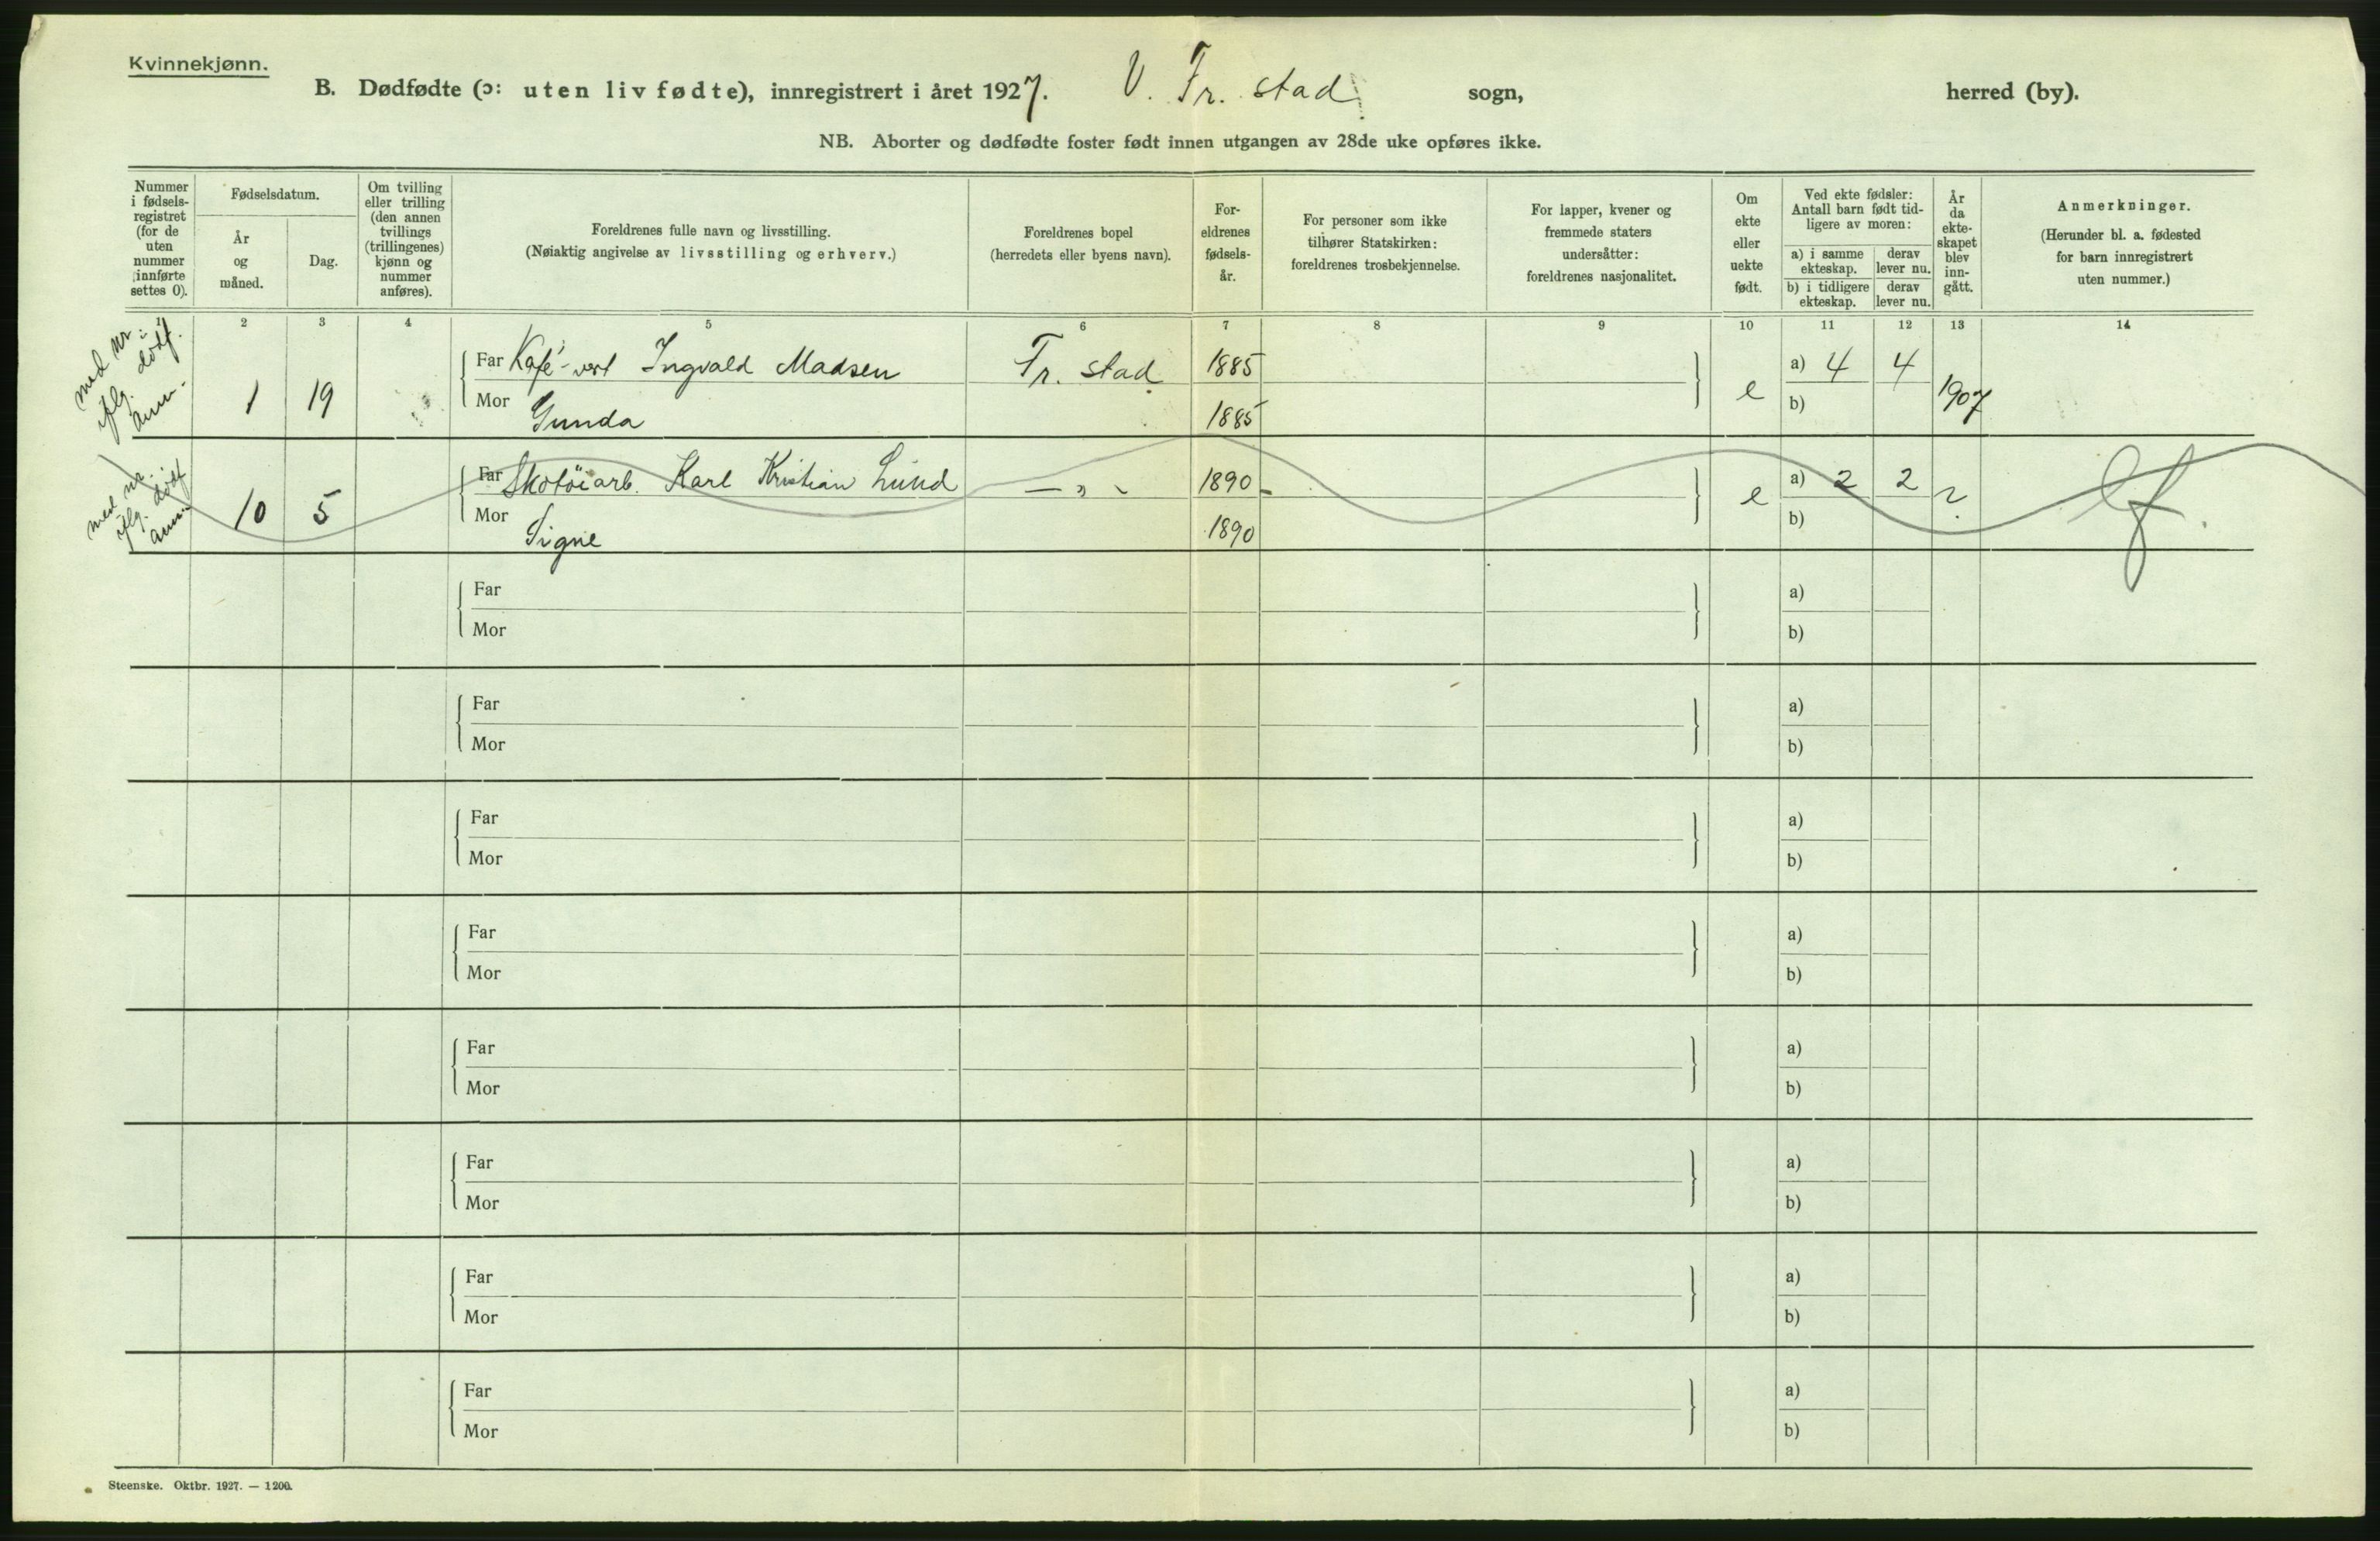 Kvinnekjønn.
B. Dødfødte (ɔ: uten liv fødte), innregistrert i året 1927. V. Fr. stad sogn, herred (by).
NB. Aborter og dødfødte foster født innen utgangen av 28de uke opføres ikke.
Nummer
i fødsels-
registret
(for de
uten
nummer
innførte
settes 0).
Fødselsdatum.
År
og
måned.
Dag.
Om tvilling
eller trilling
(den annen
tvillings
(trillingenes)
kjønn og
nummer
anføres).
Foreldrenes fulle navn og livsstilling.
(Nøiaktig angivelse av livsstilling og erhverv.)
Foreldrenes bopel
(herredets eller byens navn).
For-
eldrenes
fødsels-
år.
For personer som ikke
tilhører Statskirken:
foreldrenes trosbekjennelse.
For lapper, kvener og
fremmede staters
undersåtter:
foreldrenes nasjonalitet.
Om
ekte
eller
uekte
født.
Ved ekte fødsler:
Antall barn født tid-
ligere av moren:
a) i samme
ekteskap.
derav
lever nu.
b) i tidligere
ekteskap.
derav
lever nu.
År
da
ekte-
skapet
blev
inn-
gått.
Anmerkninger.
(Herunder bl. a. fødested
for barn innregistrert
uten nummer.)
1 2 3 4 5 6 7 8 9 10 11 12 13 14
med nr.
iflg. dødf.
anm.
1 19
Far Kafé-vert Ingvald Madsen Fr. stad 1885
Mor Gunda 1885
e
a) 4 4
b)
1907
med nr.
iflg. dødf
anm.
10 5
Far Skotöiarb. Karl Kristian Lund — " - 1890
Mor Signe 1890
e
a) 2 2
b)
?
Far
Mor
a)
b)
Far
Mor
a)
b)
Far
Mor
a)
b)
Far
Mor
a)
b)
Far
Mor
a)
b)
Far
Mor
a)
b)
Far
Mor
a)
b)
Far
Mor
a)
b)
Steenske. Oktbr. 1927. — 1200.